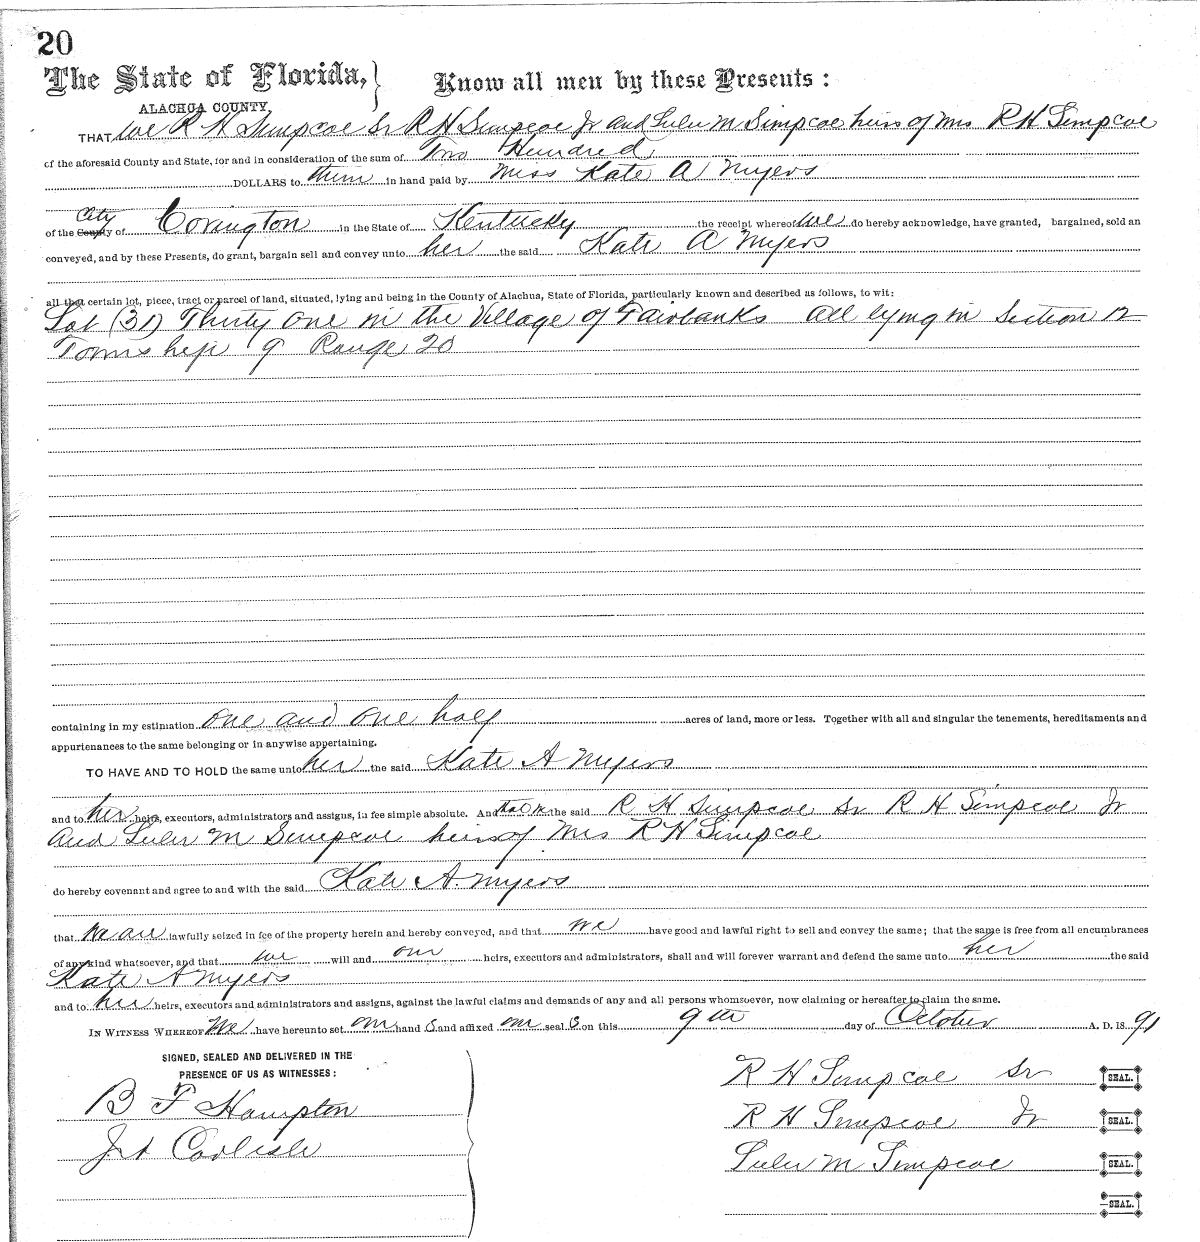 20
The State of Florida,
Know all men by these Presents:
ALACHUA COUNTY,
THAT we R H Simpcoe Sr R H Simpcoe Jr and Lulu M Simpcoe heirs of Mrs R H Simpcoe
of the aforesaid County and State, for and in consideration of the sum of Two Hundred
DOLLARS to them in hand paid by Miss Kate A Myers
City
of the County of Covington in the State of Kentucky the receipt whereof we do hereby acknowledge, have granted, bargained, sold an
conveyed, and by these Presents, do grant, bargain sell and convey unto her the said Kate A Myers
all that certain lot, piece, tract or parcel of land, situated, lying and being in the County of Alachua, State of Florida, particularly known and described as follows, to wit:
Lot (31) Thirty One in the Village of Fairbanks all lying in Section 12
Township 9 Range 20
containing in my estimation one and one half acres of land, more or less. Together with all and singular the tenements, hereditaments and
appurtenances to the same belonging or in anywise appertaining.
TO HAVE AND TO HOLD the same unto her the said Kate A Myers
and to her heirs, executors, administrators and assigns, in fee simple absolute. And the said R H Simpcoe Sr R H Simpcoe Jr
and Lulu M Simpcoe heirs of Mrs R H Simpcoe
do hereby covenant and agree to and with the said Kate A. Myers
that we are lawfully seized in fee of the property herein and hereby conveyed, and that we have good and lawful right to sell and convey the same; that the same is free from all encumbrances
of any kind whatsoever, and that we will and our heirs, executors and administrators, shall and will forever warrant and defend the same unto her the said
Kate A Myers
and to her heirs, executors and administrators and assigns, against the lawful claims and demands of any and all persons whomsoever, now claiming or hereafter to claim the same.
IN WITNESS WHEREOF We have hereunto set our hand s and affixed our seal s on this 9th day of October A. D. 18 91
SIGNED, SEALED AND DELIVERED IN THE
PRESENCE OF US AS WITNESSES:
R H Simpcoe Sr SEAL.
B F Hampton
R H Simpcoe Jr SEAL.
Carlisle
Lulu M Simpcoe SEAL.
SEAL.